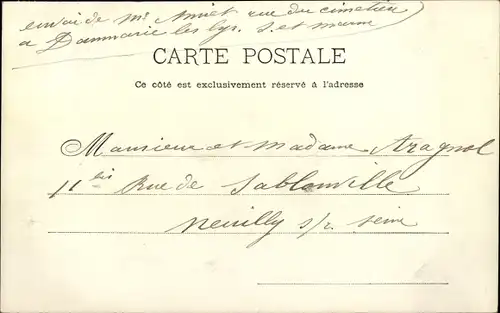 envoi de Mr Amiet rue du cimetière
a Dammarie les lys. S. et marne
CARTE POSTALE
Ce côté est exclusivement réservé à l'adresse
Monsieur et madame Aragnol
11 bis Rue de Sablonville
Neuilly s/r. Seine